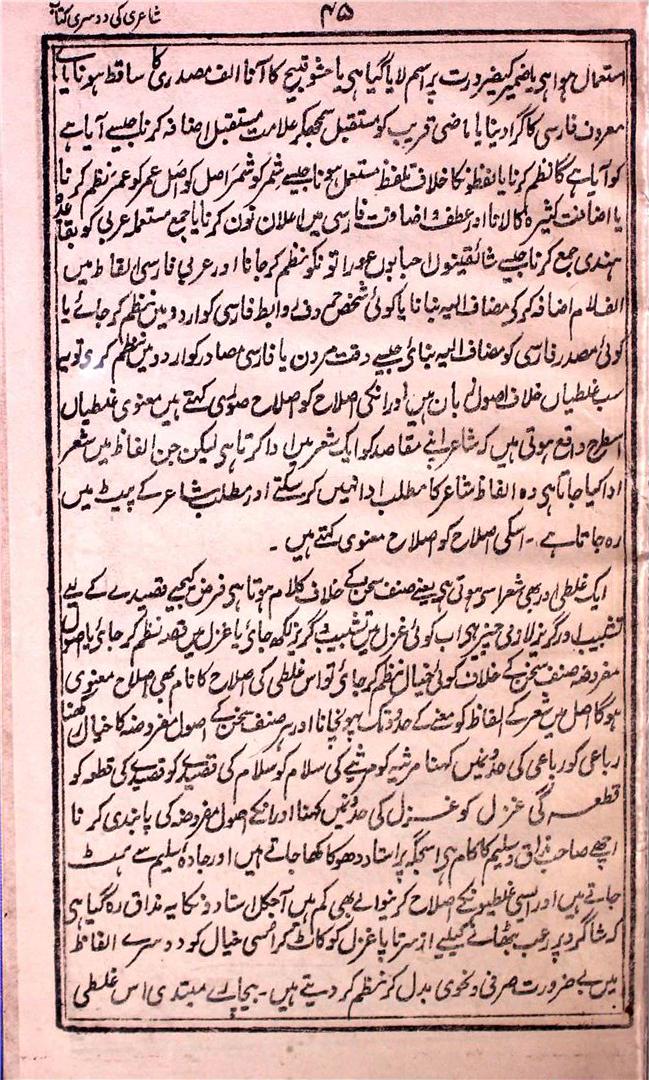 ۴۵
شاعری کی دوسری کتاب
استعمال ہوا ہی یا ضمیر کیضرورت پر اسم لایا گیا ہی یا حشو قبیح کا آنا الف مصدری کا ساقط ہونا یا یای
معروف فارسی کا گرا دینا یا ماضی قریب کو مستقبل سمجھکر علامت مستقبل اضافہ کرنا جیسے آیا ہے
کو آیا ہے گا نظم کرنا یا لفظونکا خلاف تلفظ مستعمل ہونا جیسے شمر کو شمَر اصل کو اصَل عمر کو عمَر نظم کرنا
یا اضافت کثیرہ کا لانا اور عطف و اضافت فارسی میں اعلان نون کرنا یا جمع مستعملہ عربی کو بقاعدہ
ہندی جمع کرنا جیسے شائقینوں احبابوں عوراتونکو نظم کر جانا اور عربی فارسی الفاظ میں
الف لام اضافہ کر کی مضاف الیہ بنانا یا کوئی شخص حروف روابط فارسی کو اردو میں نظم کر جائے یا
کوئی مصدر فارسی کو مضاف الیہ بنائی جیسے دقت مردن یا فارسی مصادر کو اردو میں نظم کری تو یہ
سب غلطیاں خلاف اصول زبان ہیں اور انکی اصلاح کو اصلاح صوری کہتے ہیں معنوی غلطیاں
اسطرح واقع ہوتی ہیں کہ شاعر اپنے مقاصد کو ایک شعر میں ادا کرتا ہی لیکن جن الفاظ میں شعر
ادا کیا جاتا ہی وہ الفاظ شاعر کا مطلب ادا نہیں کر سکتے اور مطلب شاعر کے پیٹ میں
رہ جاتا ہے ۔ اسکی اصلاح کو اصلاح معنوی کہتے ہیں ۔
ایک غلطی اور بھی شعرا سی ہوتی ہی یعنے صنف سخن کے خلاف کلام ہوتا ہی فرض کیجیے قصیدے کے لیے
تشبیب اور گریز لازمی چیز ہی اب کوئی غزل میں تشبیب و گریز لکھ جائی یا غزل میں قصہ نظم کر جائی یا اصول
مفروضہ صنف سخن کے خلاف کوئی خیال نظم کر جائی تو اس غلطی کی اصلاح کا نام بھی اصلاح معنوی
ہوگا اصل میں شعر کے الفاظ کو معنے کے حدود تک پہونچانا اور ہر صنف سخن کے اصول مفروضہ کا خیال رکھنا
رباعی کو رباعی کی حدونمیں کہنا مرثیہ کو مرثیے کی سلام کو سلام کی قصیدے کو قصیدے کی قطعہ کو
قطعہ کی غزل کو غزل کی حدونمیں کہنا اور انکے اصول مفروضہ کی پابندی کرنا
اچھے صاحب مذاق سلیم کا کام ہی اسجگہ پر استاد دھوکا کھا جاتے ہیں اور جادۂ سلیم سے ہٹ
جاتے ہیں اور ایسی غلطیونکے اصلاح کرنیوالے بھی کم ہیں آجکل استادونکا یہ مذاق رہ گیا ہی
کہ شاگرد پر رعب بٹھانے کیلیے از سر تا پا غزل کو کاٹ کر اسی خیال کو دوسرے الفاظ
میں بے ضرورت صرفی و نحوی بدل کر نظم کر دیتے ہیں ۔ بیچارے مبتدی اس غلطی